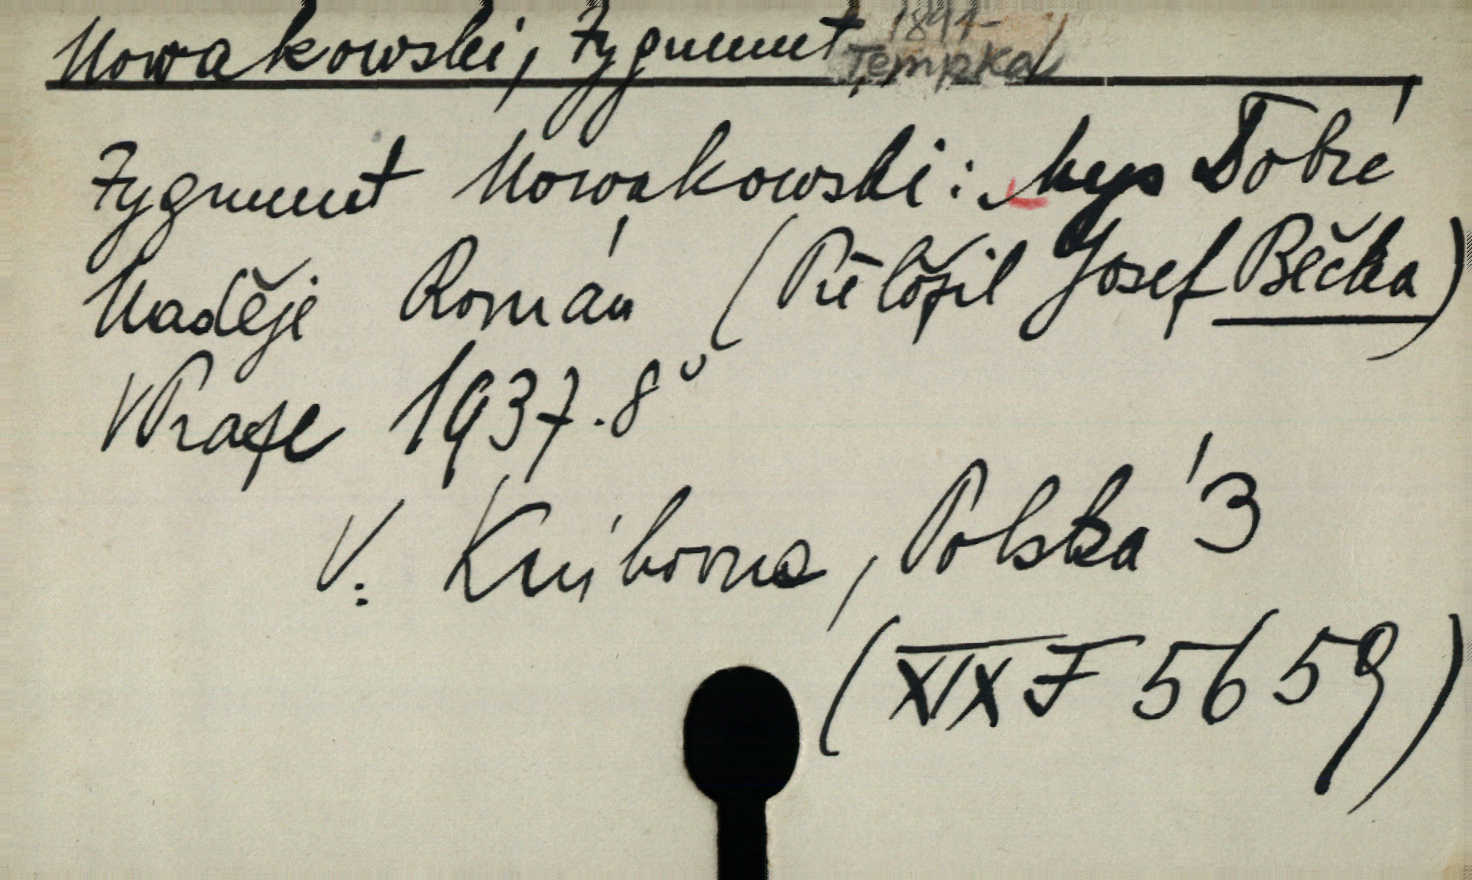 Nowakowski, Zygmunt 1891-
Tempka
Zygmunt Nowakowski: Mys Dobré
Naděje Román (Přeložil Josef Bečka)
V Praze 1937. 8°
V: Knihovna, Polská 3
(XIX F 5659)